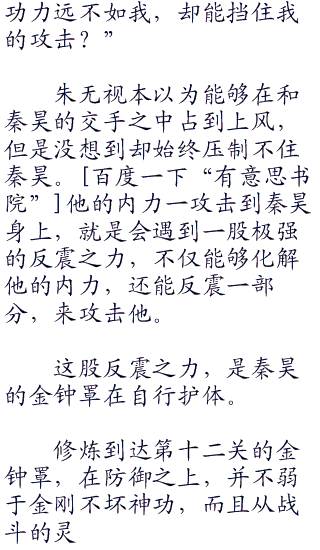 功力远不如我，却能挡住我
的攻击？”
朱无视本以为能够在和
秦昊的交手之中占到上风，
但是没想到却始终压制不住
秦昊。[百度一下“有意思书
院”]他的内力一攻击到秦昊
身上，就是会遇到一股极强
的反震之力，不仅能够化解
他的内力，还能反震一部
分，来攻击他。
这股反震之力，是秦昊
的金钟罩在自行护体。
修炼到达第十二关的金
钟罩，在防御之上，并不弱
于金刚不坏神功，而且从战
斗的灵